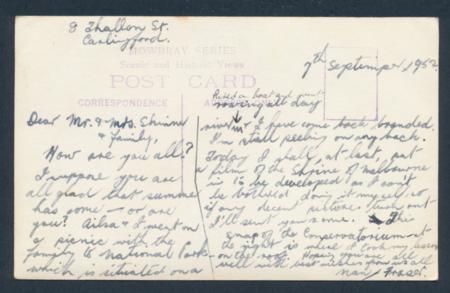 8 Thallon St.
Carlingford.
MOWBRAY SERIES
Scenic and Historic Views
POST CARD
CORRESPONDENCE
7th September, 1952
Dear Mr. & Mrs. Skinner
& Family,
How are you all?
I suppose you are
all glad that summer
has come — or are
you? Ailsa & I went on
a picnic with the
family to National Park
which is situated on a
Hired a boat and went
rowing all day
river I have come back
I'm still peeling on my back.
Today I shall, at last, put
a film of the Shrine of Melbourne
in to be developed as I can't
be bothered doing it myself so
if any decent pictures turn out
I'll send you some. This
snap of the Conservatorium at
the right is where I took my
on the roof. Hoping you are all
well with best wishes from us all
Nan Fraser.